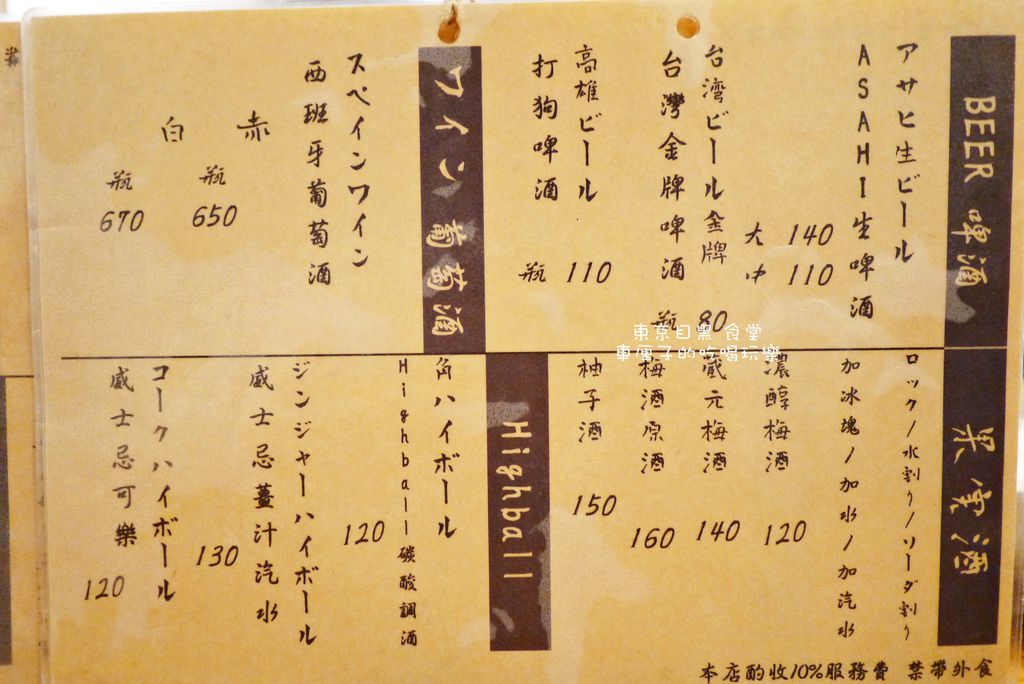 BEER 啤酒
アサヒ生ビール
ASAHI生啤酒
大 140
中 110
台湾ビール金牌
台灣金牌啤酒
瓶 80
高雄ビール
打狗啤酒
瓶 110
ワイン 葡萄酒
スペインワイン
西班牙葡萄酒
赤
瓶 650
白
瓶 670
果実酒
ロック/水割り/ソーダ割り
加冰塊/加水/加汽水
濃醇梅酒
120
蔵元梅酒
140
梅酒原酒
160
柚子酒
150
Highball
角ハイボール
Highball碳酸調酒
120
ジンジャーハイボール
威士忌薑汁汽水
130
コークハイボール
威士忌可樂
120
本店酌收10%服務費 禁帶外食
東京目黑 食堂
車厘子的吃喝玩樂